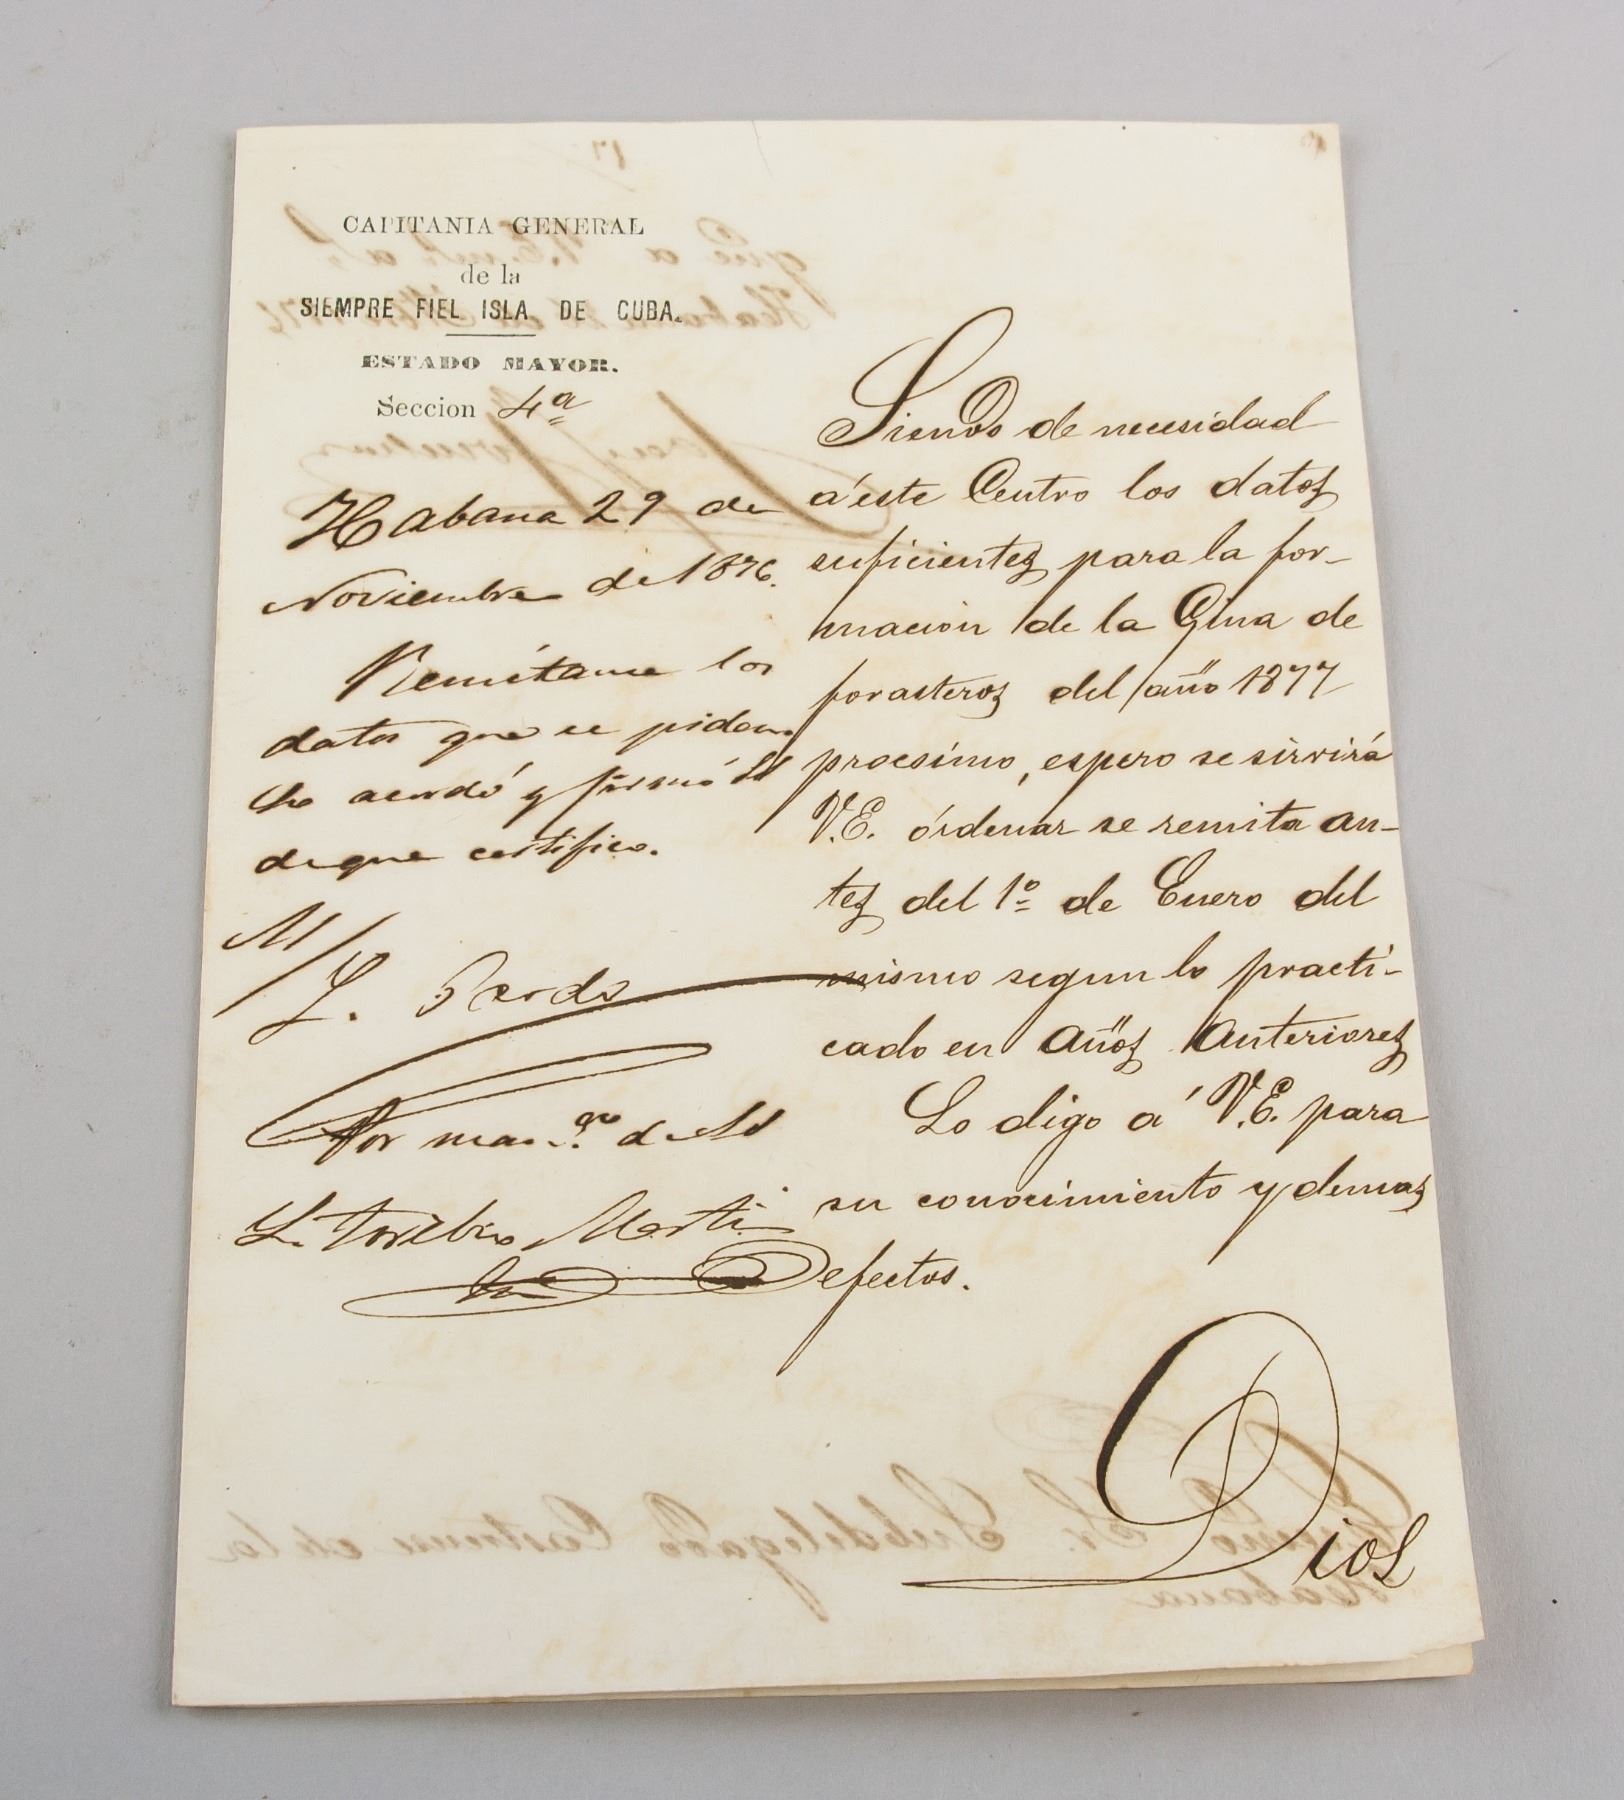 CAPITANIA GENERAL
de la
SIEMPRE FIEL ISLA DE CUBA.
ESTADO MAYOR.
Seccion 4ª
Habana 29 de
Noviembre de 1876.
Remítame los
datos que se piden.
Lo acordó y firmó
de que certifico.
Siendo de necesidad
a' este Centro los datos
suficientes para la for-
macion de la Guia de
forasteros del año 1877
procsimo, espero se sirvirá
V.E. órdenar se remita an-
tes del 1º de Enero del
mismo segun lo practi-
cado en años anteriores
Lo digo a' V.E. para
su conocimiento y demas
efectos.
Dios